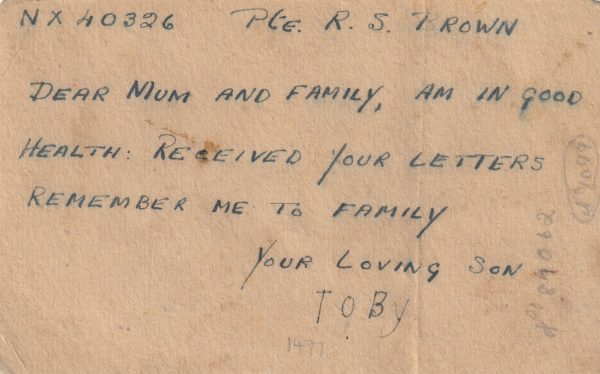 NX 40326 Pte. R. S. BROWN
DEAR MUM AND FAMILY, AM IN GOOD
HEALTH: RECEIVED YOUR LETTERS
REMEMBER ME TO FAMILY
YOUR LOVING SON
TOBY
1477